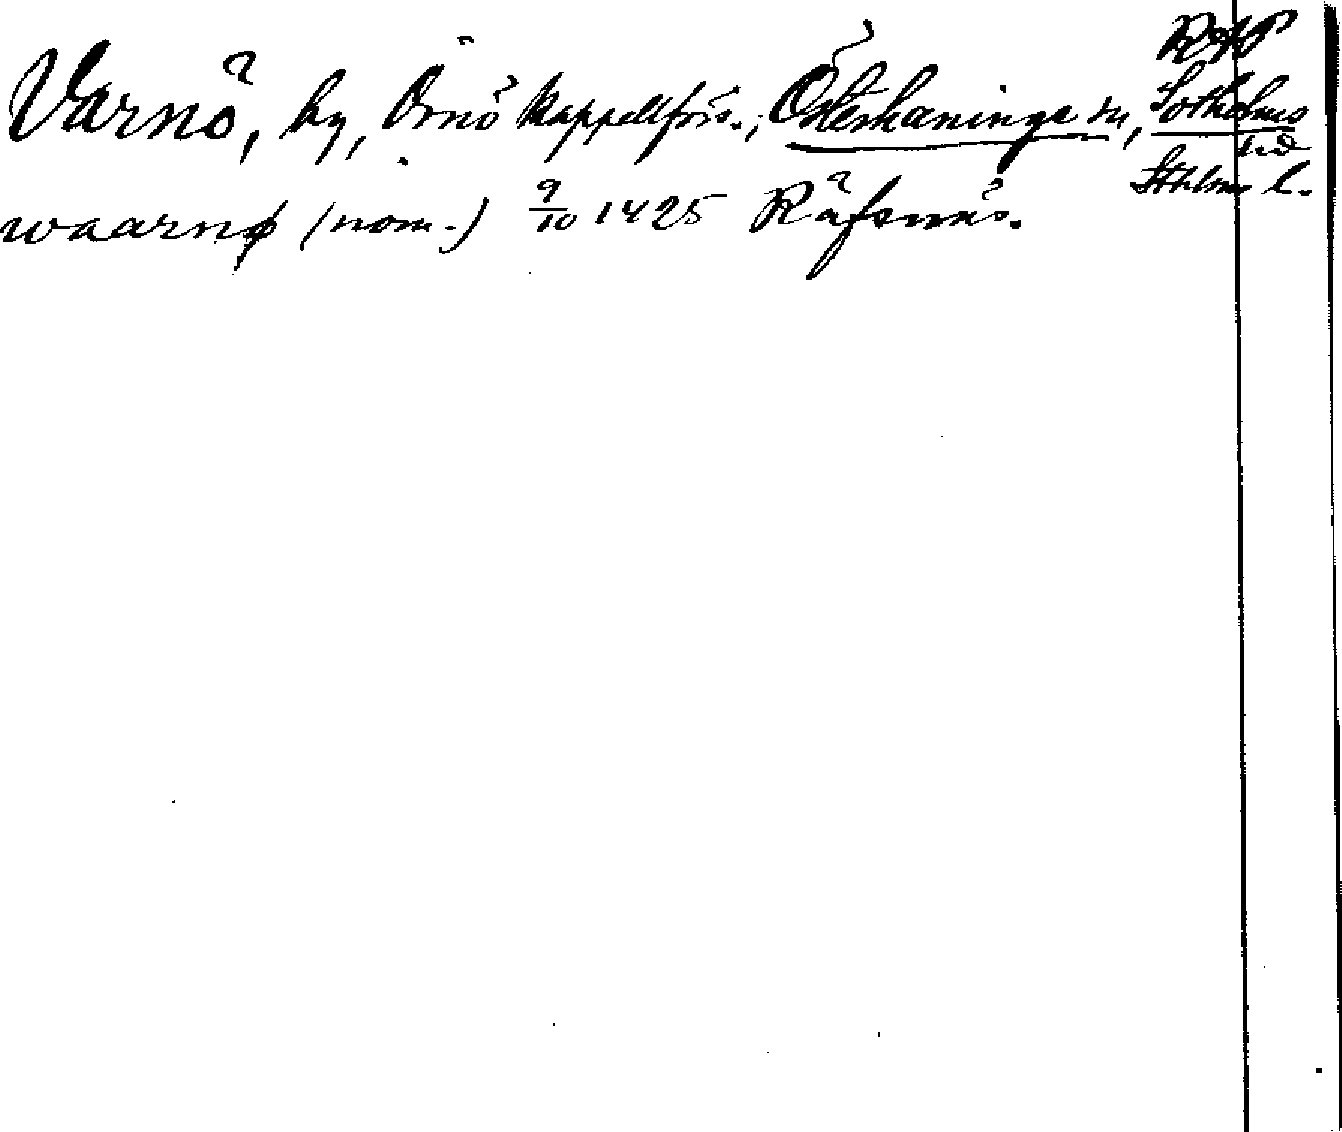 RAP
Värnö, by, Ornö kappellförs., Österhaninge sn, Sotholms
hd
Sthlms l.
waarnø (nom.) 9/10 1425 Räfsnäs.